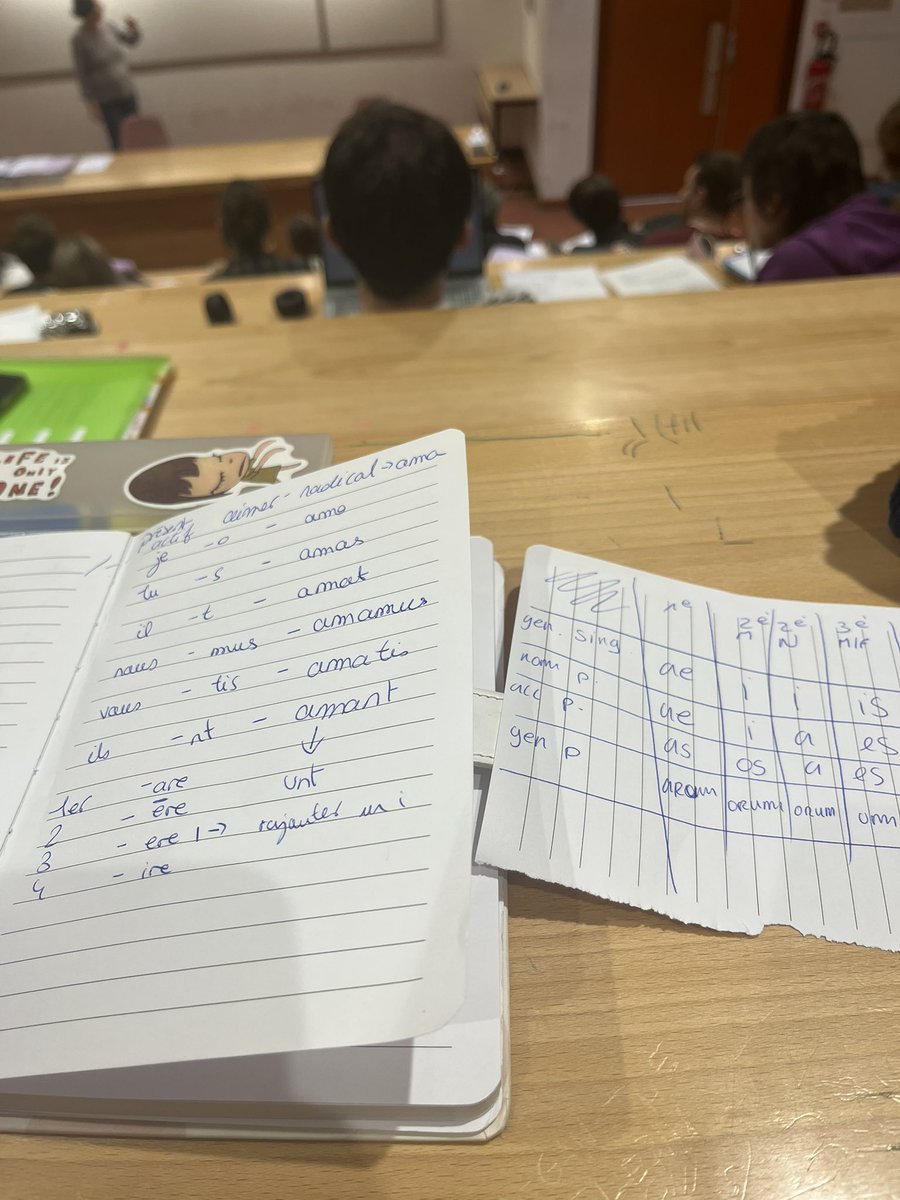 LIFE is
ONLY
ONE!
présent aimer - radical → ama
actif
je -o - amo
tu -s - amas
il -t - amat
nous - mus - amamus
vous - tis - amatis
ils -nt - amant
↓
1er -are unt
2 - ēre
3 - ere | → rajouter un i
4 - ire
1e 2e M 2e N 3e M/F
gen. sing ae i i is
nom p. ae i a es
acc p. as os a es
gen p arum orum orum um